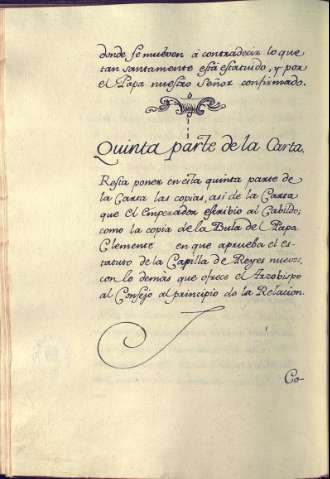 donde se mueven á contradecir lo que
tan santamente está estatuido, y por
el Papa nuestro Señor confirmado.
Quinta parte de la Carta.
Resta poner en esta quinta parte de
la Carta las copias, asi de la Carta
que el Emperador escribio al Cabildo;
como la copia de la Bula del Papa
Clemente en que aprueba el es-
tatuto de la Capilla de Reyes nuevos,
con lo demàs que ofrece el Arzobispo
al Consejo al principio de la Relacion.
Co-